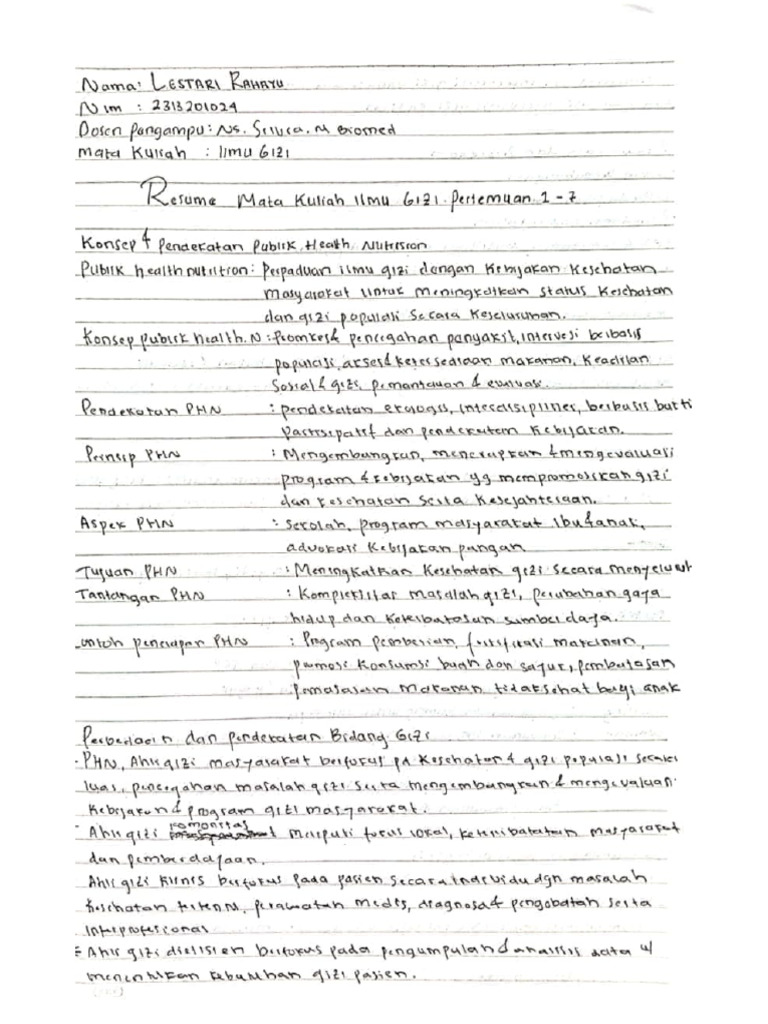 Nama: LESTARI RAHAYU
Nim : 2313201024
Dosen Pangampu: Ns. Silvia. M Biomed
Mata Kuliah : Ilmu Gizi
Resume Mata Kuliah Ilmu Gizi. Pertemuan 1 - 7
Konsep & Pendekatan Publik Health Nutrision
Publik health nutrition: Perpaduan ilmu gizi dengan Kebijakan Kesehatan
masyarakat untuk meningkatkan status Kesehatan
dan gizi populasi secara Keseluruhan.
Konsep Publik Health. N : Promkes & pencegahan panyakit, intervesi berbasis
populasi, akses & ketersediaan makanan, Keadilan
Sosial & gizi, pemantauan & evaluasi.
Pendekatan PHN : pendekatan ekologis, interdisipliner, berbasis bukti
Partisipatif dan pendekatan Kebijakan.
Prinsip PHN : Mengembangkan, menerapkan & mengevaluasi
program & kebijakan yg mempromosikan gizi
dan kesehatan serta Kesejahteraan.
Aspek PHN : sekolah, program masyarakat ibu & anak,
advokasi Kebijakan pangan.
Tujuan PHN : Meningkatkan Kesehatan gizi secara menyeluruh
Tantangan PHN : Kompleksitas masalah gizi, perubahan gaya
hidup dan Keterbatasan sumber daya.
ontoh penerapan PHN : Program pemberian, fortifikasi makanan,
promosi Konsumsi buah dan sayur, pembatasan
pemasaran makanan tidak sehat bagi anak
Perbedaan dan pendekatan Bidang Gizi
· PHN, Ahli gizi masyarakat berfokus pa Kesehatan & gizi populasi secara
luas, pencegahan masalah gizi serta mengembangkan & mengevaluasi
Kebijakan & program gizi masyarakat.
· Ahli gizi komonitas meliputi fokus lokal, keterlibatan masyarakat
dan pemberdayaan.
Ahli gizi klinis berfokus pada pasien secara individu dgn masalah
Kesehatan tertentu, perawatan medis, diagnosa & pengobatan serta
interprofesional
Ahli gizi dietisien berfokus pada pengumpulan & analisis data u/
menentukan kebutuhan gizi pasien.